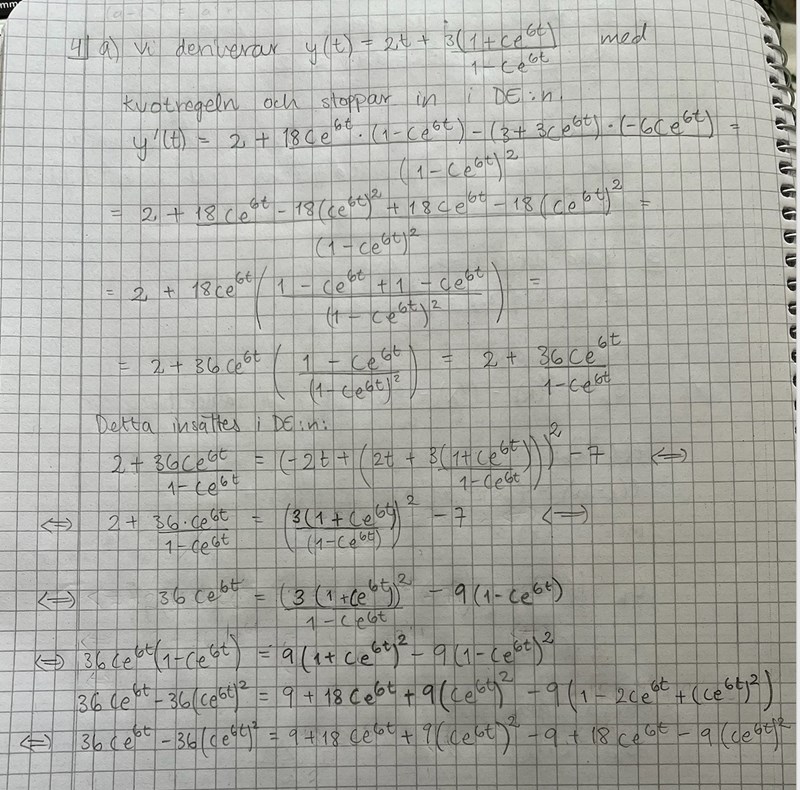 4) a) Vi deriverar y(t) = 2t + 3(1+ce^{6t})/(1-ce^{6t}) med
kvotregeln och stoppar in i DE:n.
y'(t) = 2 + (18ce^{6t}·(1-ce^{6t})-(3+3ce^{6t})·(-6ce^{6t}))/(1-ce^{6t})^2 =
= 2 + (18ce^{6t} - 18(ce^{6t})^2 + 18ce^{6t} - 18(ce^{6t})^2)/(1-ce^{6t})^2 =
= 2 + 18ce^{6t}((1 - ce^{6t} + 1 - ce^{6t})/(1 - ce^{6t})^2) =
= 2 + 36ce^{6t}((1 - ce^{6t})/(1-ce^{6t})^2) = 2 + 36ce^{6t}/(1-ce^{6t})
Detta insättes i DE:n:
2 + 36ce^{6t}/(1-ce^{6t}) = (-2t + (2t + 3(1+ce^{6t})/(1-ce^{6t})))^2 - 7 <=>
<=> 2 + 36·ce^{6t}/(1-ce^{6t}) = (3(1+ce^{6t})/(1-ce^{6t}))^2 - 7 <=>
<=> 36ce^{6t} = (3(1+ce^{6t}))^2/(1-ce^{6t}) - 9(1-ce^{6t})
<=> 36ce^{6t}(1-ce^{6t}) = 9(1+ce^{6t})^2 - 9(1-ce^{6t})^2
36ce^{6t} - 36(ce^{6t})^2 = 9 + 18ce^{6t} + 9(ce^{6t})^2 - 9(1 - 2ce^{6t} + (ce^{6t})^2)
<=> 36ce^{6t} - 36(ce^{6t})^2 = 9 + 18ce^{6t} + 9(ce^{6t})^2 - 9 + 18ce^{6t} - 9(ce^{6t})^2